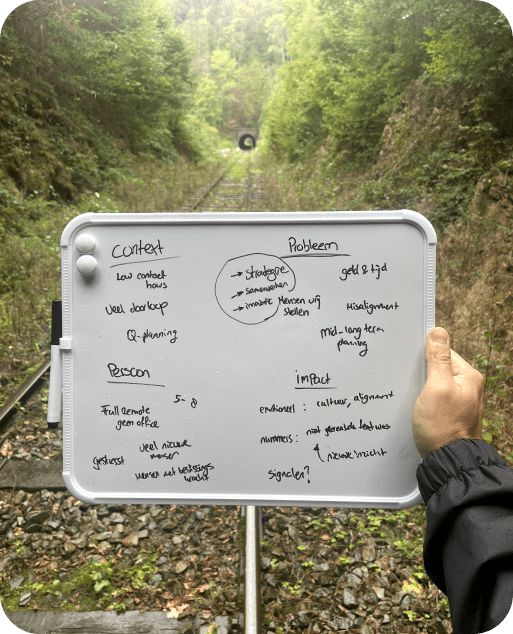 Context
Low contact
hours
Veel doorloop
Q-planning
Probleem
→ Strategie
→ samenwerken
→ innovatie
Mensen vrij
stellen
geld & tijd
Misalignment
Mid-long term
planing
Persoon
5-8
Full remote
geen office
veel nieuwe
mensen
gestresst
mensen met beslissings
kracht
impact
emotioneel : cultuur, alignment
nummers : niet gereleasde features
nieuw inzicht
signalen?